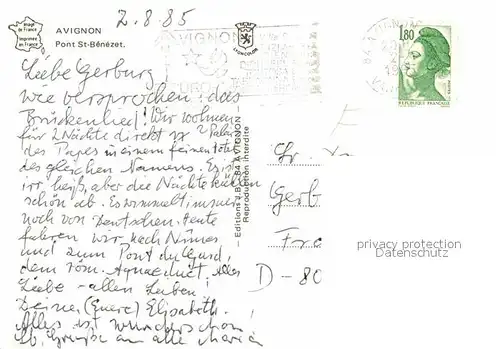 2.8.85
image de France
Imprimée en France
AVIGNON
Pont St-Bénézet.
LYONCOLOR
AVIGNON
1,80
REPUBLIQUE FRANCAISE
Liebe Gerburg
wie versprochen: das
Brückenlied! Wir wohnen
für 2 Nächte direkt
des Papes in einem feinen Hotel
des gleichen Namens. Es ist
irr heiß, aber die Nächte kühlen
schön ab. Es wimmelt immer
noch von Deutschen. Heute
fahren wir nach Nîmes
und zum Pont du Gard,
dem röm. Aquaeduct. Alles
Liebe - allen Lieben!
Deine (Euere) Elisabeth.
Alles ist wunderschön
Lb. Grüße an alle Maria
Editions 84 AVIGNON
Reproduction interdite
Gerb
Fra
D-80
privacy protection
Datenschutz